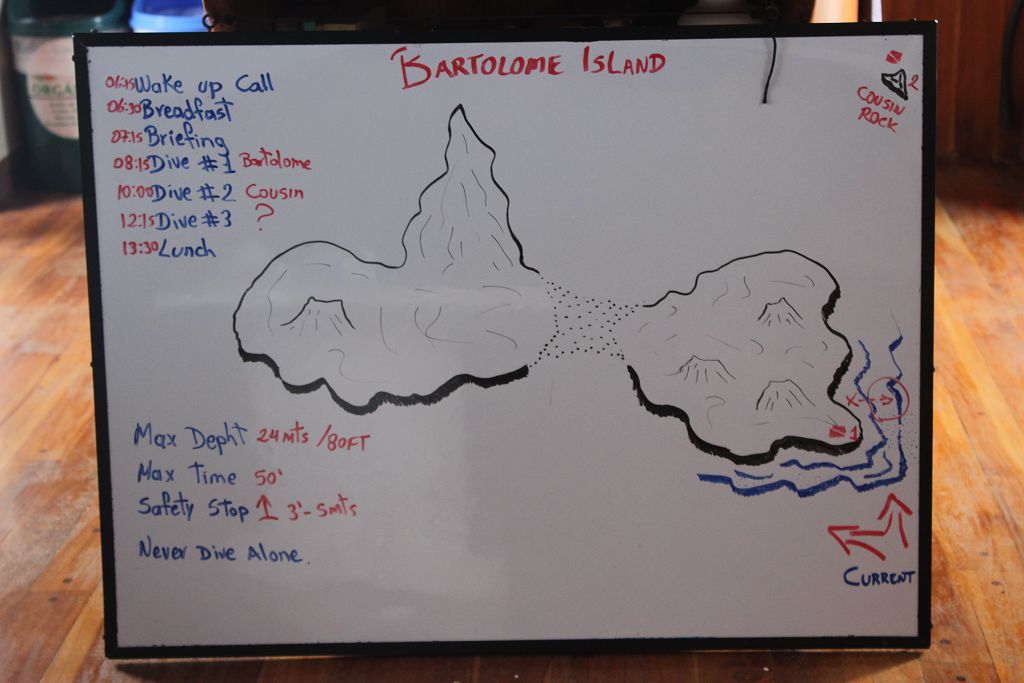 BARTOLOME ISLAND
06:15 Wake up Call
06:30 Breadfast
07:15 Briefing
08:15 Dive #1 Bartolome
10:00 Dive #2 Cousin
12:15 Dive #3 ?
13:30 Lunch
2
COUSIN
ROCK
1
x
Max Depht 24mts /80FT
Max Time 50'
Safety Stop 3'-5mts
Never Dive Alone.
CURRENT